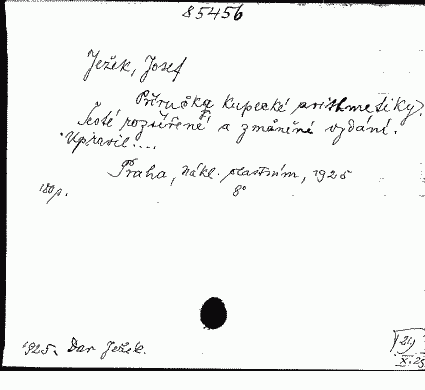 85456
Ježek, Josef
Příručka kupecké arithmetiky.
Šesté rozšířené a změněné vydání.
Upravil...
Praha, nákl. vlastním, 1925
180 p. 8°
1925. Dar Ježek.
X.25